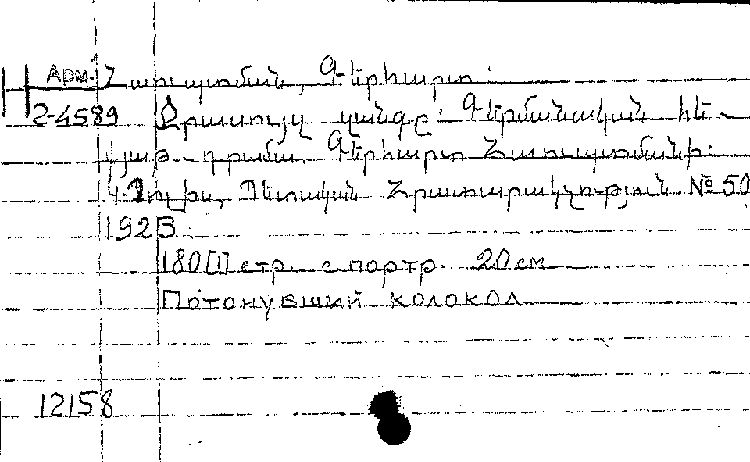 Арм. Հաուպտման, Գերհարտ:
2-4589 Ջրասույզ զանգը: Գերմանական հե-
քյաթ-դրամա Գերհարտ Հաուպտմանի:
Պետական Հրատարակչություն № 50
1923
180[1] стр. с портр. 20 см
Потонувший колокол
12158